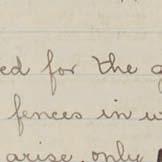 ed for the
fences in
arise, only